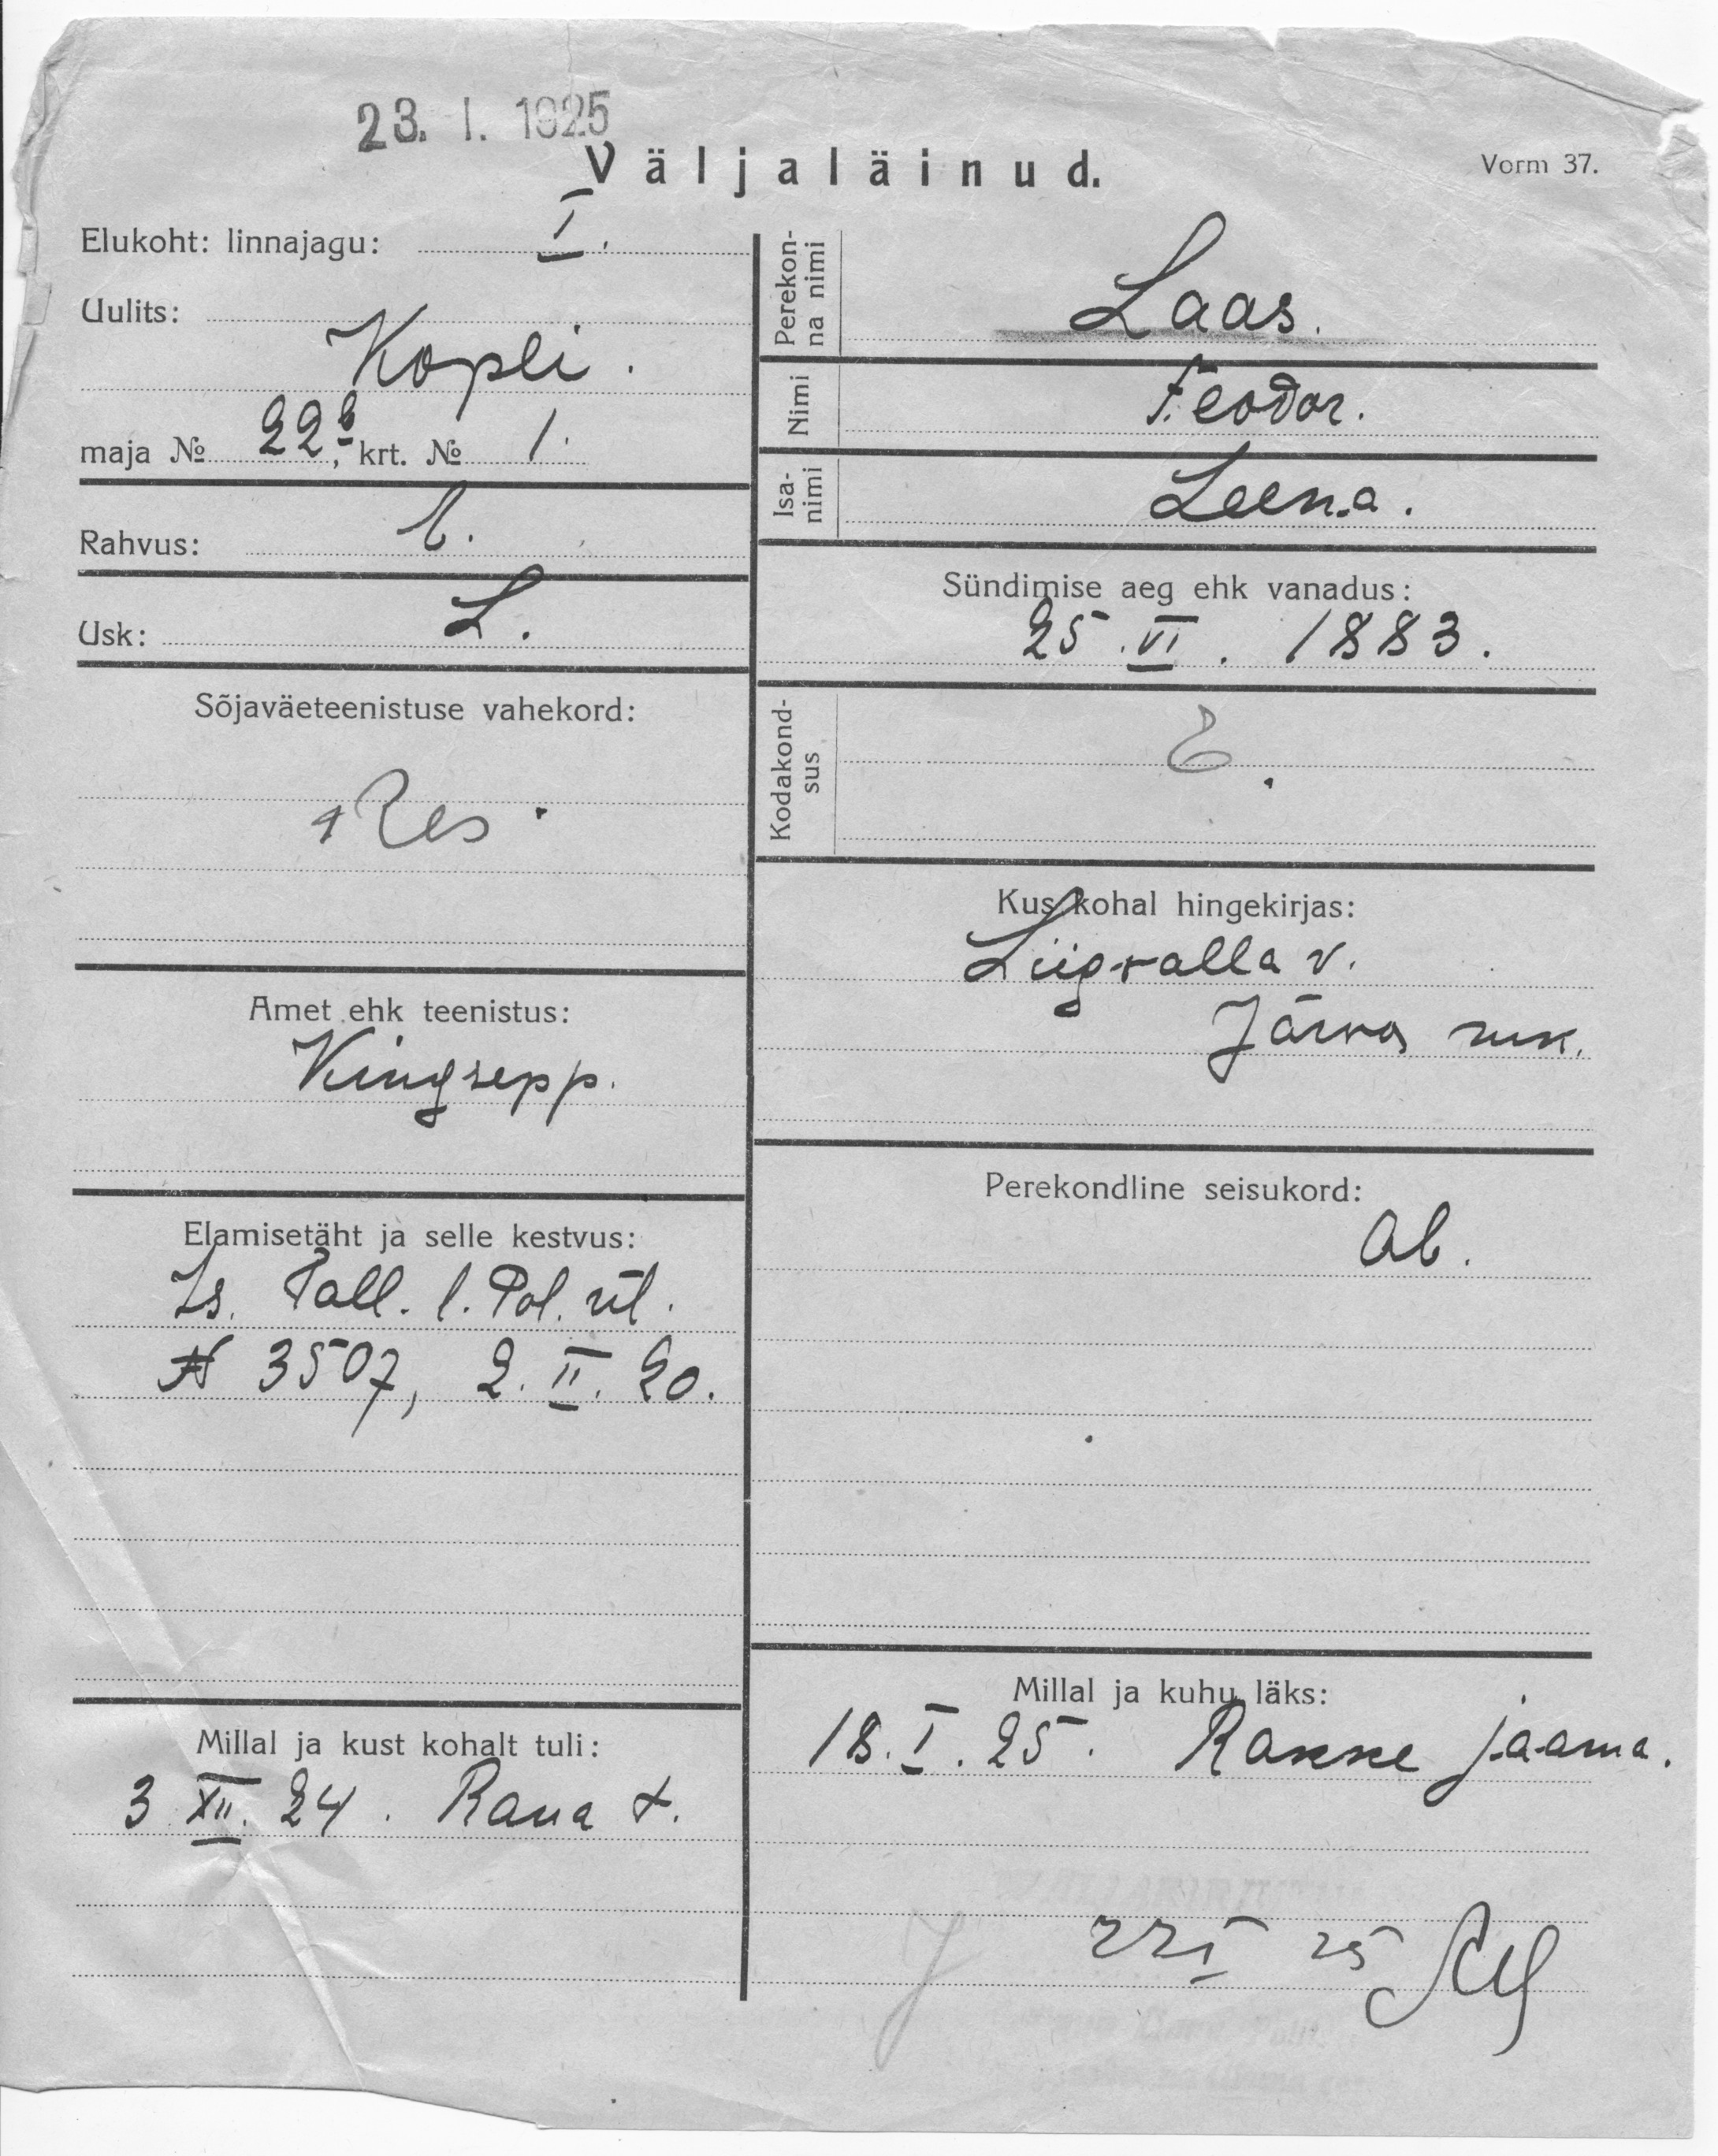 23. I. 1925
Väljaläinud.
Vorm 37.
Elukoht: linnajagu: I.
Uulits:
Kopli.
maja № 22b, krt. № 1.
Rahvus: E.
Usk: L.
Sõjaväeteenistuse vahekord:
Res.
Amet ehk teenistus:
Kingsepp.
Elamisetäht ja selle kestvus:
Is. Tall. l. Pol. ül.
N 3507, 2. II. 20.
Millal ja kust kohalt tuli:
3 XII. 24. Raua t.
Perekon-
na nimi
Laas.
Nimi
Feodor.
Isa-
nimi
Leena.
Sündimise aeg ehk vanadus:
25. VI. 1883.
Kodakond-
sus
E.
Kus kohal hingekirjas:
Liigvalla v.
Järva mk.
Perekondline seisukord:
Ab.
Millal ja kuhu läks:
18. I. 25. Rakke jaama.
22 I 25